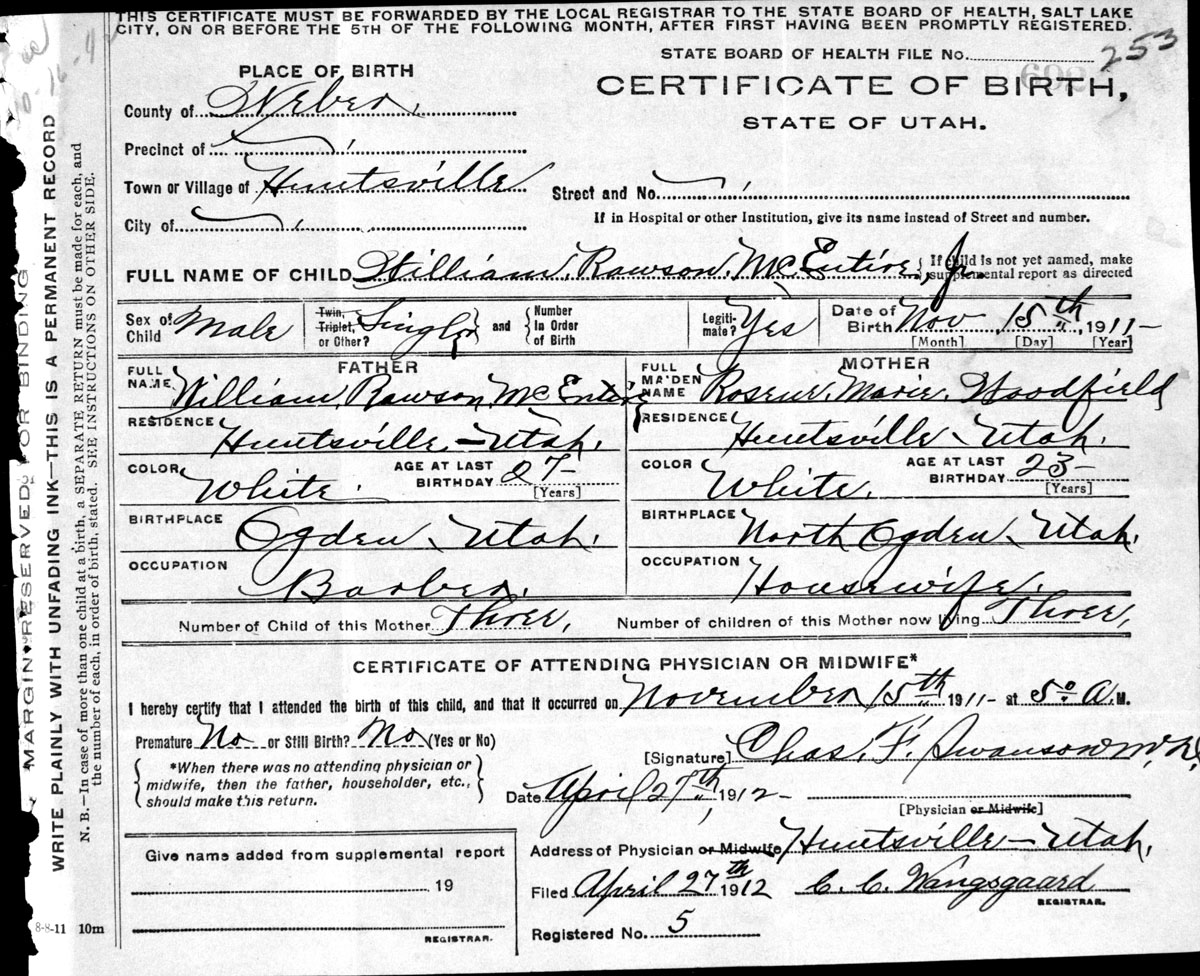 THIS CERTIFICATE MUST BE FORWARDED BY THE LOCAL REGISTRAR TO THE STATE BOARD OF HEALTH, SALT LAKE
CITY, ON OR BEFORE THE 5TH OF THE FOLLOWING MONTH, AFTER FIRST HAVING BEEN PROMPTLY REGISTERED.
STATE BOARD OF HEALTH FILE No. 253
PLACE OF BIRTH
CERTIFICATE OF BIRTH,
STATE OF UTAH.
County of Weber.
Precinct of
Town or Village of Huntsville
Street and No.
City of
If in Hospital or other Institution, give its name instead of Street and number.
FULL NAME OF CHILD William Rawson McEntire, Jr. { If child is not yet named, make
supplemental report as directed
Sex of Child Male
Twin, Triplet, or Other? Single } and { Number In Order of Birth
Legiti-mate? Yes
Date of Birth Nov 15th, 1911-
[Month] [Day] [Year]
FATHER
MOTHER
FULL NAME William Rawson McEntire
FULL MAIDEN NAME Marie Woodfield
RESIDENCE Huntsville - Utah.
RESIDENCE Huntsville - Utah.
COLOR White. AGE AT LAST BIRTHDAY 27- [Years]
COLOR White. AGE AT LAST BIRTHDAY 23- [Years]
BIRTHPLACE Ogden - Utah.
BIRTHPLACE North Ogden - Utah.
OCCUPATION Barber.
OCCUPATION Housewife.
Number of Child of this Mother Three,
Number of children of this Mother now living Three,
CERTIFICATE OF ATTENDING PHYSICIAN OR MIDWIFE*
I hereby certify that I attended the birth of this child, and that it occurred on November 15th 1911- at 5 00 A.M.
Premature No or Still Birth? No (Yes or No)
[Signature] Chas. F. Swanson M.D.
{ *When there was no attending physician or
midwife, then the father, householder, etc.,
should make this return. }
Date April 27th, 1912-
[Physician or Midwife]
Give name added from supplemental report
Address of Physician or Midwife Huntsville - Utah.
19
Filed April 27th 1912 C. C. Wangsgaard
REGISTRAR.
REGISTRAR.
Registered No. 5
8-8-11 10m
MARGIN RESERVED FOR BINDING
WRITE PLAINLY WITH UNFADING INK—THIS IS A PERMANENT RECORD
N. B.—In case of more than one child at a birth, a SEPARATE RETURN must be made for each, and
the number of each, in order of birth, stated. SEE INSTRUCTIONS ON OTHER SIDE.